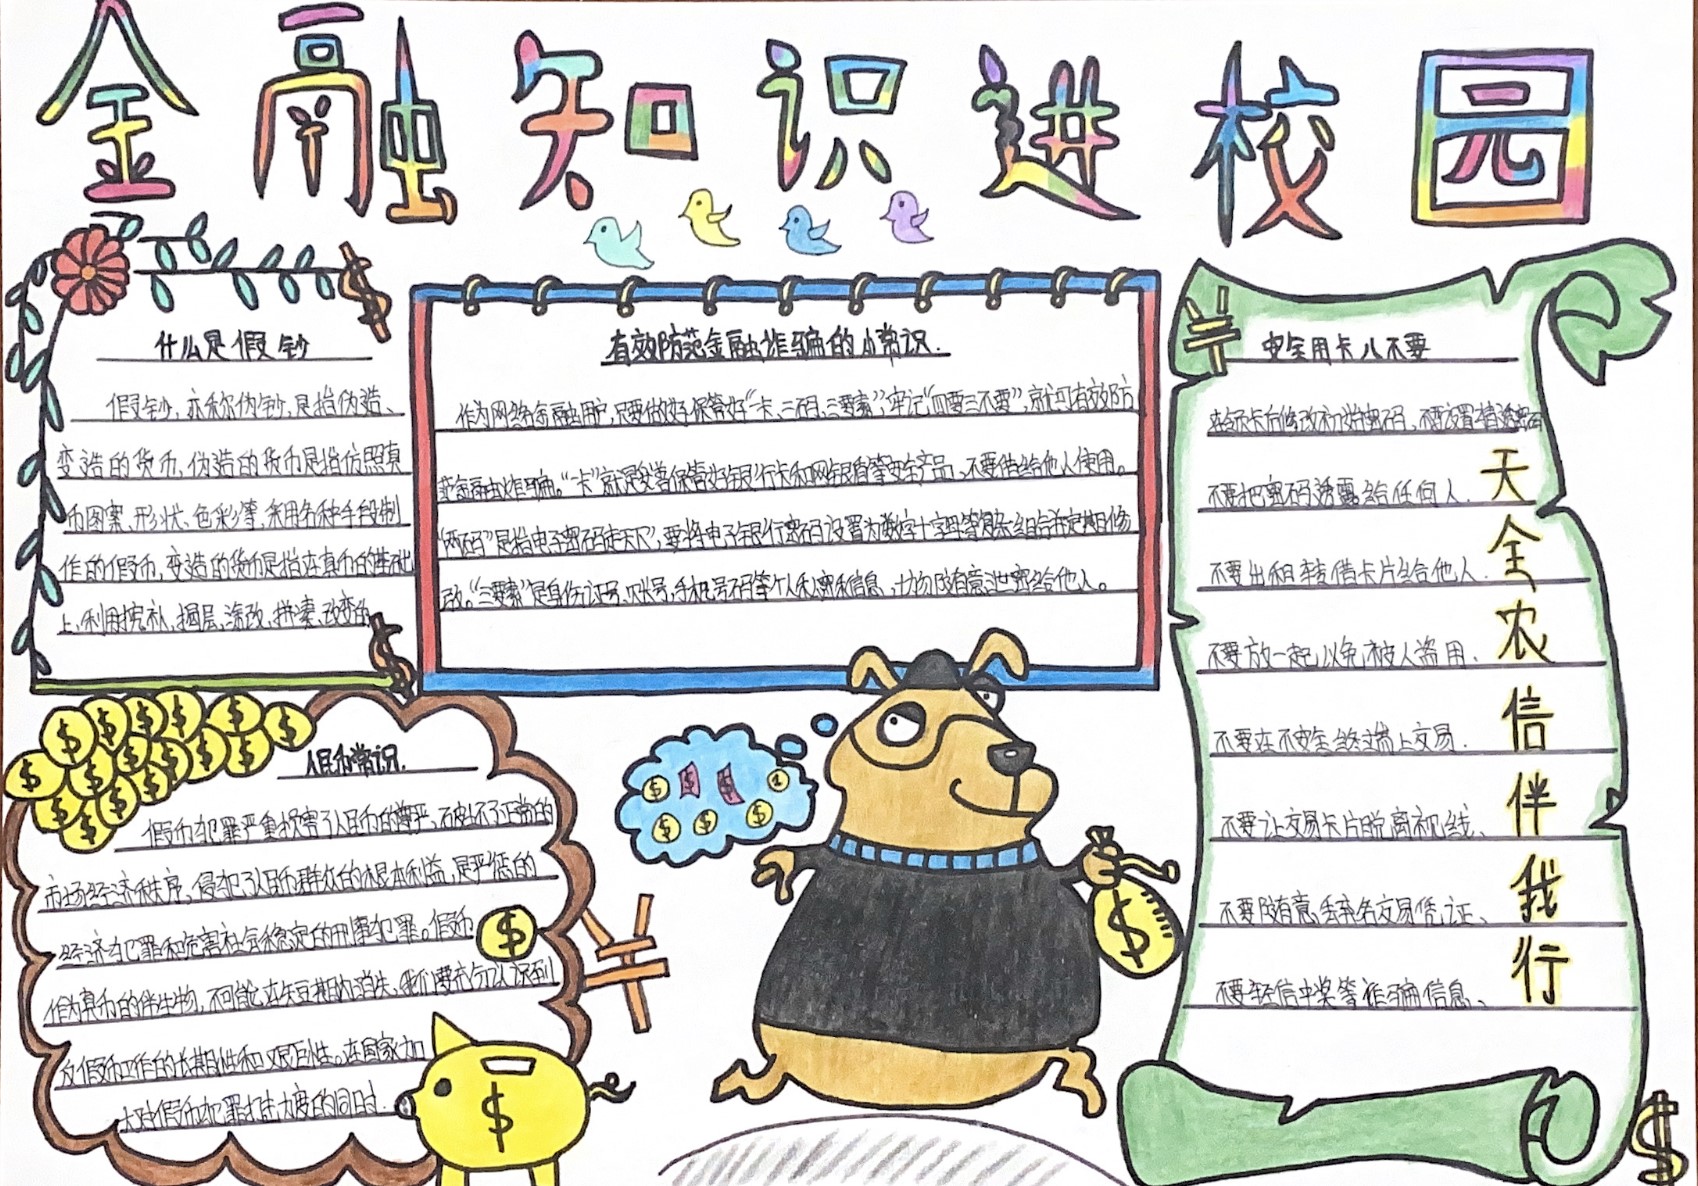 金融知识进校园
什么是假钞
假钞,亦称伪钞,是指伪造、
变造的货币,伪造的货币是指仿照真
币图案、形状、色彩等,采用各种手段制
作的假币,变造的货币是指在真币的基础
上,利用挖补、揭层、涂改、拼凑、改变的
有效防范金融诈骗的小常识.
作为网络金融用户,只要做好保管好“一卡、二码、三要素”,牢记“四要三不要”,就可有效防
范金融诈骗。“一卡”就是妥善保管好银行卡和网银盾等安全产品,不要借给他人使用。
“两码”是指电子密码走天下”,要将电子银行密码设置为数字十字母等复杂组合并定期修
改。“三要素”是身份证号、账号、手机号码等个人私密信息,切勿随意泄露给他人。
安全用卡八不要
在领卡后修改初始密码,不要设置普通密码
不要把密码透露给任何人.
不要出租转借卡片给他人.
不要放一起,以免被人盗用.
不要在不安全终端上交易.
不要让交易卡片脱离视线、
不要随意丢弃名交易凭证、
不要轻信中奖等诈骗信息、
天全农信伴我行
人民币常识.
假币犯罪严重损害了人民币的尊严,破坏了正常的
市场经济秩序,侵犯了人民币群众的根本利益,是严惩的
经济犯罪和危害社会稳定的刑事犯罪。假币
作为真币的伴生物,不可能在短期内消失,我们要充分认识到
反假币工作的长期性和艰巨性。在国家加
大对假币犯罪打击力度的同时